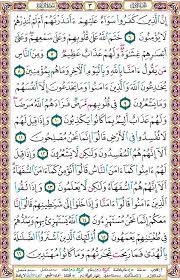 ٣
إِنَّ الَّذِينَ كَفَرُوا سَوَاءٌ عَلَيْهِمْ ءَأَنذَرْتَهُمْ أَمْ لَمْ تُنذِرْهُمْ
لَا يُؤْمِنُونَ ٦ خَتَمَ اللَّهُ عَلَىٰ قُلُوبِهِمْ وَعَلَىٰ سَمْعِهِمْ وَعَلَىٰ
أَبْصَٰرِهِمْ غِشَٰوَةٌ وَلَهُمْ عَذَابٌ عَظِيمٌ ٧ وَمِنَ النَّاسِ
مَن يَقُولُ ءَامَنَّا بِاللَّهِ وَبِالْيَوْمِ الْءَاخِرِ وَمَا هُم بِمُؤْمِنِينَ ٨
يُخَٰدِعُونَ اللَّهَ وَالَّذِينَ ءَامَنُوا وَمَا يَخْدَعُونَ إِلَّا أَنفُسَهُمْ
وَمَا يَشْعُرُونَ ٩ فِي قُلُوبِهِم مَّرَضٌ فَزَادَهُمُ اللَّهُ مَرَضًا
وَلَهُمْ عَذَابٌ أَلِيمٌ بِمَا كَانُوا يَكْذِبُونَ ١٠ وَإِذَا قِيلَ لَهُمْ
لَا تُفْسِدُوا فِي الْأَرْضِ قَالُوا إِنَّمَا نَحْنُ مُصْلِحُونَ ١١
أَلَا إِنَّهُمْ هُمُ الْمُفْسِدُونَ وَلَٰكِن لَّا يَشْعُرُونَ ١٢ وَإِذَا قِيلَ لَهُمْ
ءَامِنُوا كَمَا ءَامَنَ النَّاسُ قَالُوا أَنُؤْمِنُ كَمَا ءَامَنَ السُّفَهَاءُ
أَلَا إِنَّهُمْ هُمُ السُّفَهَاءُ وَلَٰكِن لَّا يَعْلَمُونَ ١٣ وَإِذَا لَقُوا الَّذِينَ
ءَامَنُوا قَالُوا ءَامَنَّا وَإِذَا خَلَوْا إِلَىٰ شَيَٰطِينِهِمْ قَالُوا إِنَّا
مَعَكُمْ إِنَّمَا نَحْنُ مُسْتَهْزِءُونَ ١٤ اللَّهُ يَسْتَهْزِئُ بِهِمْ وَيَمُدُّهُمْ
فِي طُغْيَٰنِهِمْ يَعْمَهُونَ ١٥ أُولَٰئِكَ الَّذِينَ اشْتَرَوُا الضَّلَٰلَةَ
بِالْهُدَىٰ فَمَا رَبِحَت تِّجَٰرَتُهُمْ وَمَا كَانُوا مُهْتَدِينَ ١٦